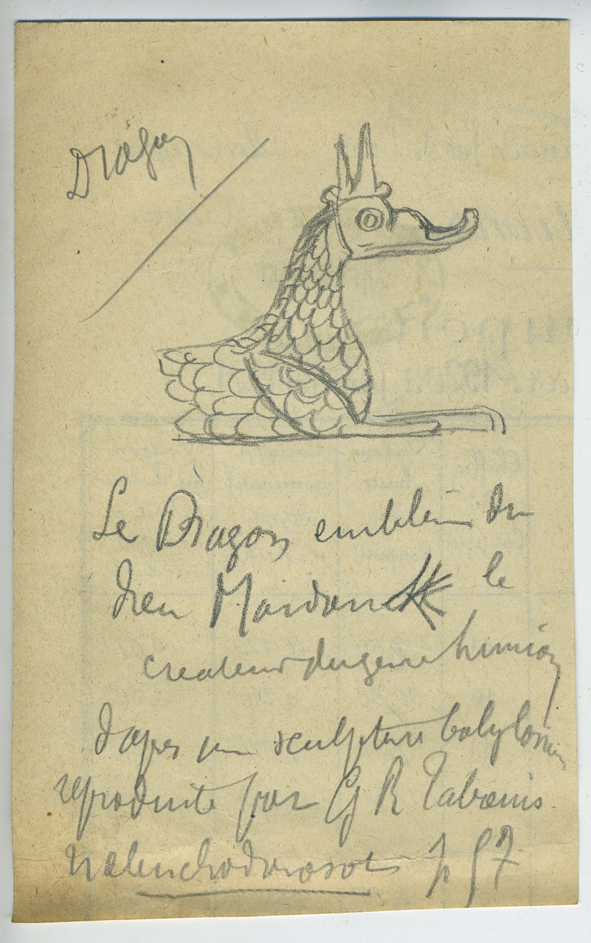 Dragon
Le Dragon emblem du
dieu Mardouk le
createur du genre humain
d'apres un sculpture babylonien
reproduite par G R Tabouis
Nabuchodonosor p 57